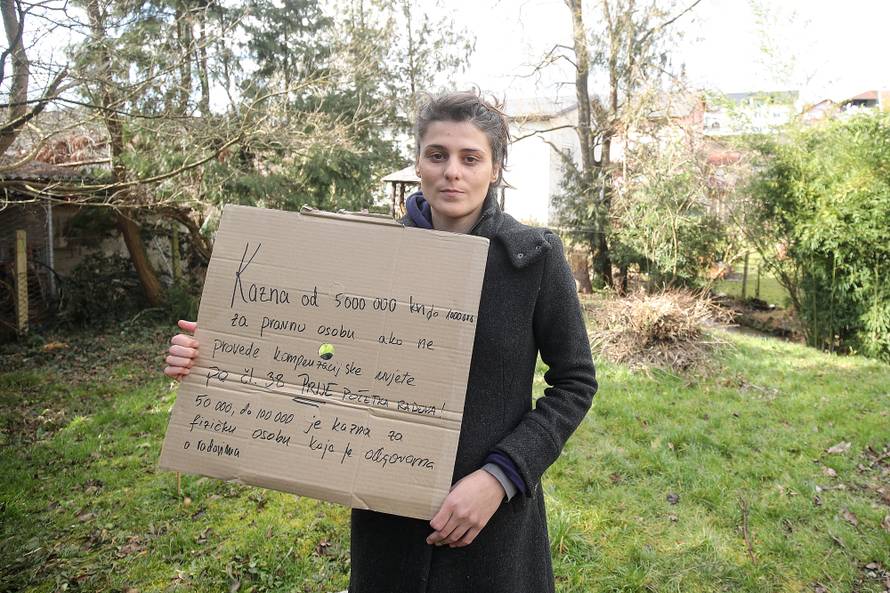 Kazna od 5000 000 kn do
za pravnu osobu ako ne
provede kompenzacijske uvjete
po čl. 38 PRIJE POČETKA RADOVA!
50 000, do 100 000 je kazna za
fizičku osobu koja je odgovorna
o radovima